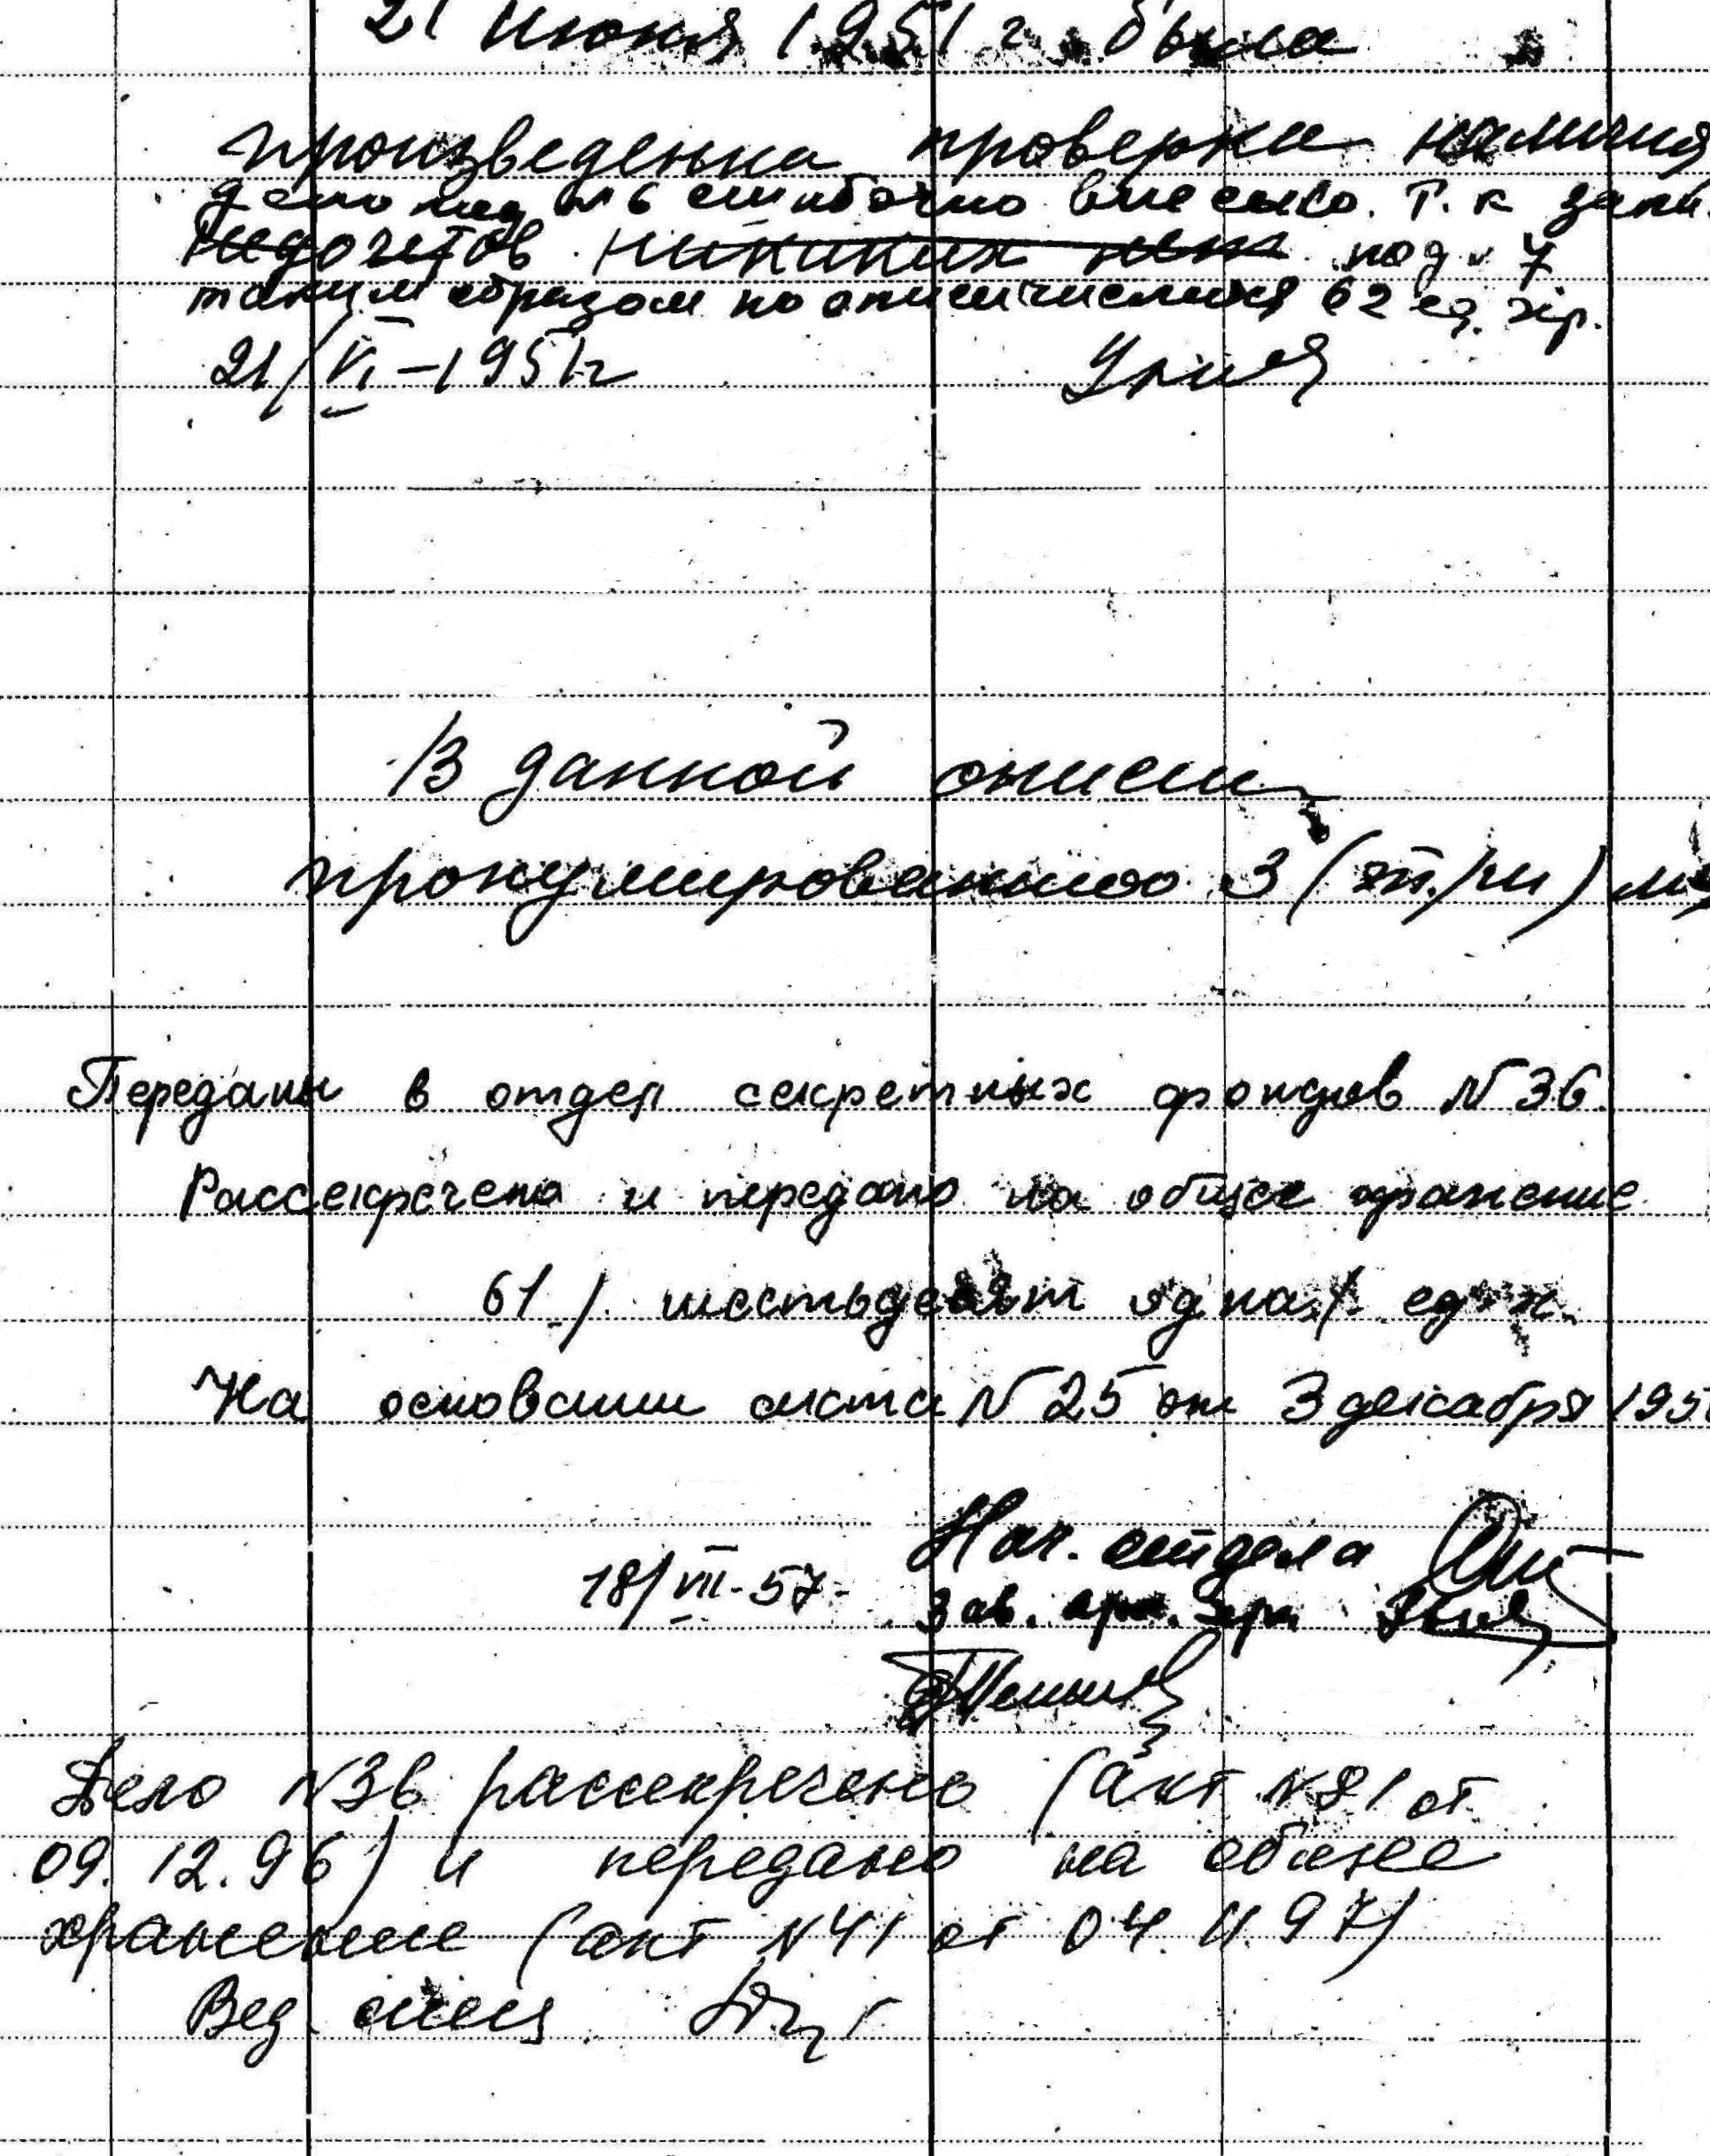 21 июня 1951 г. была
произведенна проверка наличия
дело под №6 ошибочно внесено. Т.к запи.
недочетов никаких нет под № 7
таким образом по описи числится 62 ед. хр.
21/VI-1951г
В данной описи
пронумерованного 3 (три)
Переданы в отдел секретных фондов №36.
Рассекречена и передано на общее хранение
61 / шестьдесят одна / ед. х.
На основании акта №25 от 3 декабря 195
Нач. отдела
18/VII-57-
Зав. арх. хр.
Дело №36 рассекречено (акт №81 от
09.12.96) и передано на общее
хранение (акт №41 от 04.11.97)
Вед. спец